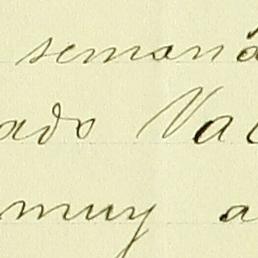 semana
ado Val
muy a